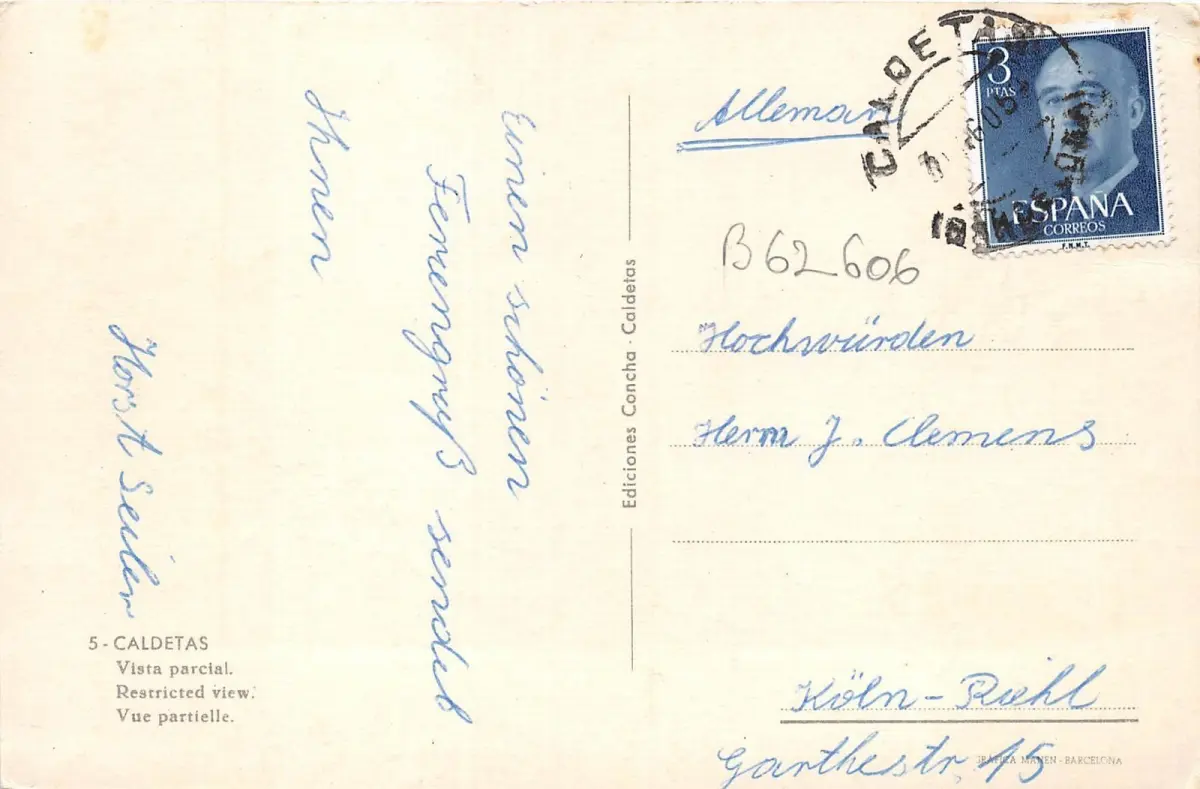 Einen schönen
Ferrengruß sendet
Ihnen
Horst Seiler
5 - CALDETAS
Vista parcial.
Restricted view.
Vue partielle.
Ediciones Concha · Caldetas
CALDETAS
3
PTAS
ESPAÑA
CORREOS
F.N.M.T.
Alleman
B62606
Hochwürden
Herrn J. Clemens
Köln - Riehl
Garthestr. 15
GRÁFICA MANEN - BARCELONA